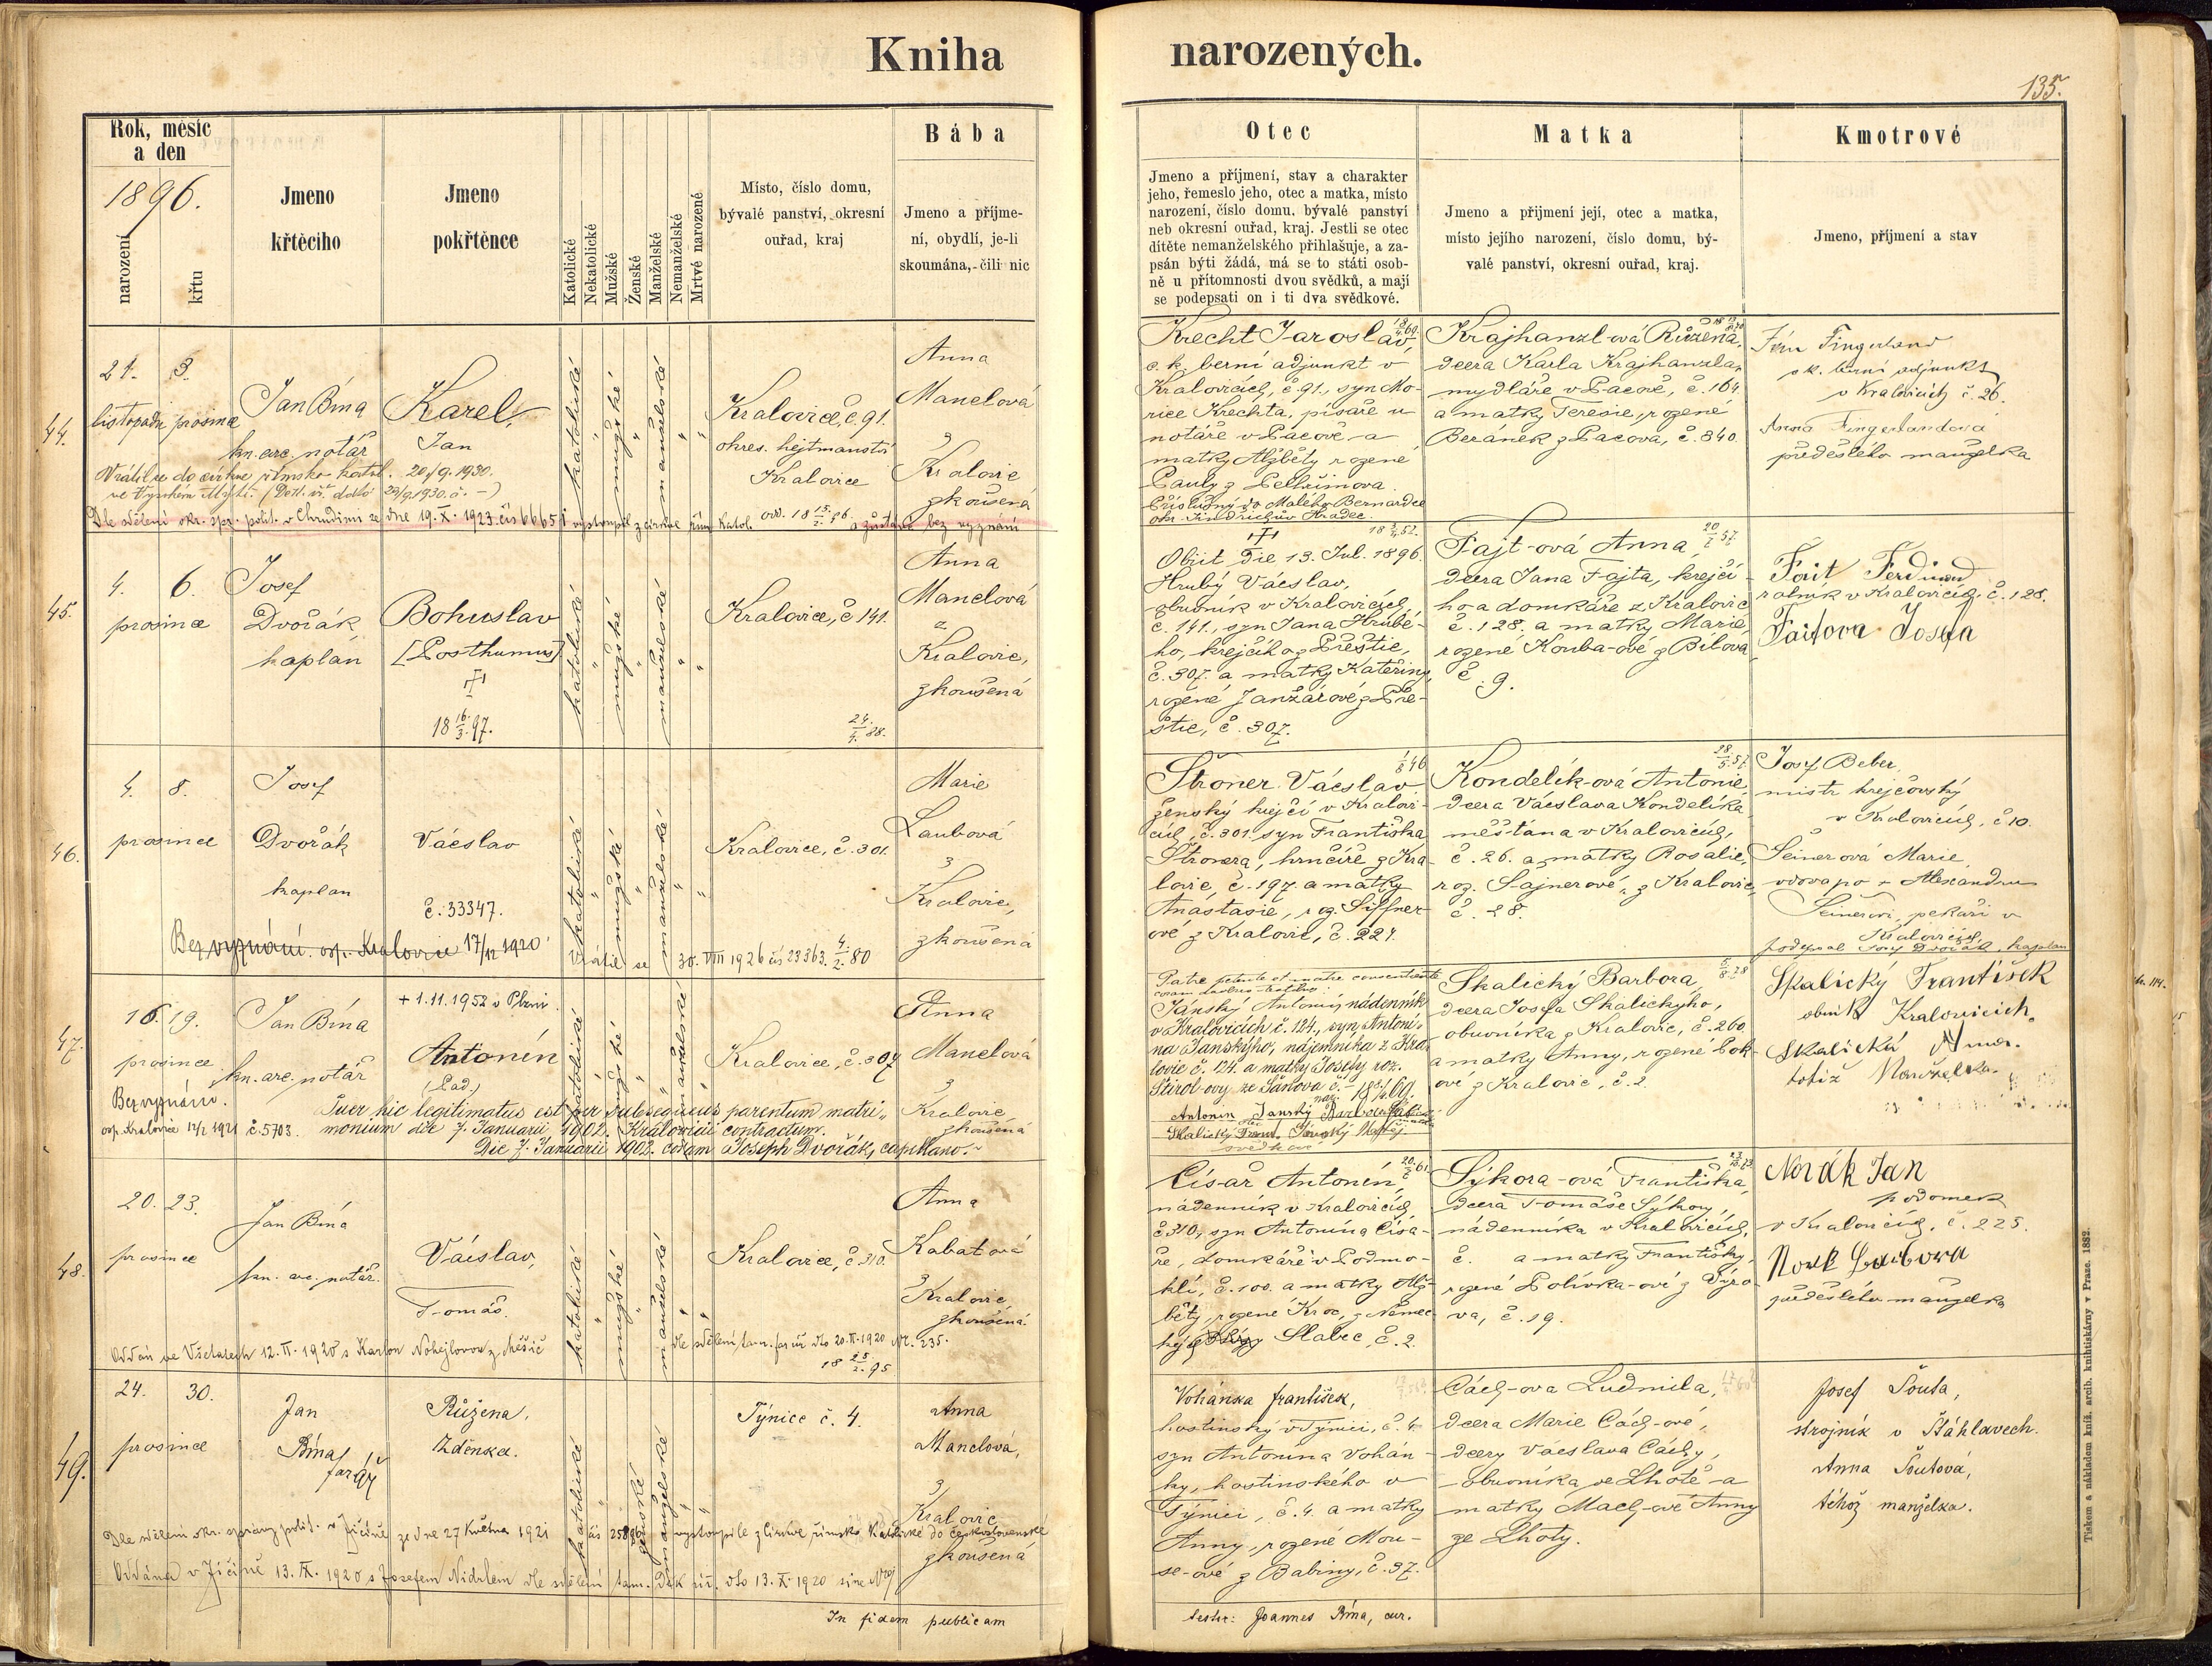 Kniha narozených.
135.
Rok, měsíc
a den
1896.
narození
křtu
Jmeno
křtěcího
Jmeno
pokřtěnce
Katolické
Nekatolické
Mužské
Ženské
Manželské
Nemanželské
Mrtvé narozené
Místo, číslo domu,
bývalé panství, okresní
ouřad, kraj
Bába
Jmeno a příjme-
ní, obydlí, je-li
skoumána, čili nic
Otec
Jmeno a příjmení, stav a charakter
jeho, řemeslo jeho, otec a matka, místo
narození, číslo domu, bývalé panství
neb okresní ouřad, kraj. Jestli se otec
dítěte nemanželského přihlašuje, a za-
psán býti žádá, má se to státi osob-
ně u přítomnosti dvou svědků, a mají
se podepsati on i ti dva svědkové.
Matka
Jmeno a přijmení její, otec a matka,
místo jejího narození, číslo domu, bý-
valé panství, okresní ouřad, kraj.
Kmotrové
Jmeno, příjmení a stav
44.
21. 3.
listopadu prosince
Jan Bína
kn. arc. notář
Karel,
Jan
katolické
mužské
manželské
Kralovice, č. 91.
okres. hejtmanství
Kralovice
Anna
Manelová
z
Kralovic
zkoušená
Vrátil se do církve římsko katol. 20/9. 1930.
ve Vysokém Mýtě.
Dle sdělení okr. spr. polit. v Chrudimi ze dne 19. X. 1923 čís 66651 vystoupil z církve řím katol. a zůstává bez vyznání
Krecht Jaroslav,
c. k. berní adjunkt v
Kralovicích, č. 91., syn Mo-
rice Krechta, písaře u
notáře v Pacově a
matky Alžběty rozené
Pauly z Pelhřimova.
Příslušný do Malého Bernardce
okr. Jindřichův Hradec.
Krajhanzl-ová Růžena,
dcera Karla Krajhanzla,
mydláře v Pacově, č. 164
a matky Teresie, rozené
Beránek z Pacova, č. 840.
Jan Fingerland
c. k. berní adjunkt
v Kralovicích č. 26.
Anna Fingerlandová
předešlého manželka
45.
4. 6.
prosince
Josef
Dvořák
kaplan
Bohuslav
[Posthumus]
18 16/3. 97.
katolické
mužské
manželské
Kralovice, č. 141.
24./4. 88.
Anna
Manelová
z
Kralovic,
zkoušená
18 3/4 52.
Obiit die 13. Jul. 1896.
Hrubý Václav,
obuvník v Kralovicích,
č. 141., syn Jana Hrubé-
ho, krejčího z Přeštic,
č. 307. a matky Kateřiny,
rozené Janžárové z Pře-
štic, č. 307.
Fajt-ová Anna,
dcera Jana Fajta, krejčí-
ho a domkáře z Kralovic
č. 128. a matky Marie,
rozené Kouba-ové z Bílova
č. 9.
Fait Ferdinand
rolník v Kralovicích, č. 128.
Faitova Josefa
46.
4. 8.
prosince
Josef
Dvořák
kaplan
Václav
č. 33347.
katolické
mužské
manželské
Kralovice, č. 301.
Marie
Laubová
z
Kralovic,
zkoušena
Bez vyznání. osp. Kralovice 17/12 1920
Vrátil se 30. VIII 1926 čís 23363. 4./2. 80
Štroner Václav
ženský krejčí v Kralovi-
cích, č. 301, syn Františka
Štronera, hrnčíře z Kra-
lovic, č. 197. a matky
Anastasie, roz. Siffner-
ové z Kralovic, č. 224.
Kondelík-ová Antonie,
dcera Václava Kondelíka
měšťana v Kralovicích,
č. 26. a matky Rosalie,
roz. Šajnerové, z Kralovic,
č. 28.
Josef Beber,
mistr krejčovský
v Kralovicích, č 10.
Šeinerová Marie,
vdova po + Alexandru
Šeinerovi, pekaři v
Kralovicích,
podepsal Josef Dvořák, kaplan
47.
16. 19.
prosince
Jan Bína
kn. arc. notář
+ 1. 11. 1952 v Plzni.
Antonín
katolické
mužské
manželské
Kralovice, č. 307
Anna
Manelová
z
Kralovic,
zkoušená
Bez vyznání.
osp. Kralovice 12/1 1921 č. 5703.
Puer hic legitimatus est per subsequens parentum matri-
monium die 7. Januarii 1902. Kralovicii contractum.
Die 7. Januarii 1902. coram Joseph Dvořák, capellano.
Patre petente et matre consentiente
coram duobus testibus:
Jánský Antonín, nádenník
v Kralovicích č. 124., syn Antoní-
na Janskýho, nájemníka z Kra-
lovic č. 124. a matky Josefy roz.
Antonín Janský
Skalický
svědkové
Skalický Barbora,
dcera Josefa Skalickýho,
obuvníka z Kralovic, č. 260,
a matky Anny, rozené Pok-
ové z Kralovic, č. 2.
Skalický František
Kralovicích.
Skalická Anna.
totiž Manželka.
48.
20. 23.
prosince
Jan Bína
kn. arc. notář.
Václav,
Tomáš.
katolické
mužské
manželské
Kralovice, č. 310.
Anna
Kabatová
z
Kralovic,
zkoušená.
Oddán ve Všetatech 12. II. 1920 s Karlou Nohejlovou z Měšic
dle sdělení tam. far úř dto 20. II. 1920 Nr. 235.
18 25/2. 95
Císař Antonín,
nádenník v Kralovicích,
č. 310, syn Antonína Císa-
ře, domkáře v Podmo-
klí, č. 100. a matky Alž-
běty, rozené Kroc, z Němec
Slabec, č. 2.
Sýkora-ová Františka,
dcera Tomáše Sýkory,
nádenníka v Kralovicích,
č. a matky Františky,
rozené Polívka-ové z Týřo-
va, č. 19.
Novák Jan
podomek
v Kralovicích, č. 225.
předešlého manželka
49.
24. 30.
prosince
Jan
Bína
farář
Růžena,
Zdenka.
katolické
ženské
manželské
Týnice č. 4.
Anna
Manelová,
z
Kralovic
zkoušená
Dle sdělení okr. správy polit. v Jičíně ze dne 27 Května 1921 vystoupila z církve římsko Katolické do československé
Oddána v Jičíně 13. IX. 1920 s Josefem Nidrlem dle sdělení tam. Děk úř. dto 13. X. 1920 sine Nro
In fidem publicam
Vohánka František,
hostinský v Týnici, č. 4.
syn Antonína Vohán-
ky, hostinského v
Týnici, č. 4. a matky
Anny, rozené Mou-
se-ové z Babiny, č. 37.
Cách-ova Ludmila,
dcera Marie Cách-ové,
dcery Václava Cáchy,
obuvníka ve Lhotě a
matky Mach-ové Anny
ze Lhoty.
Josef Šouta,
strojník v Šťáhlavech.
Anna Šoutová,
téhož manželka.
testor: Joannes Bína, cur.
Tiskem a nákladem kníž. arcib. knihtiskárny v Praze. 1882.